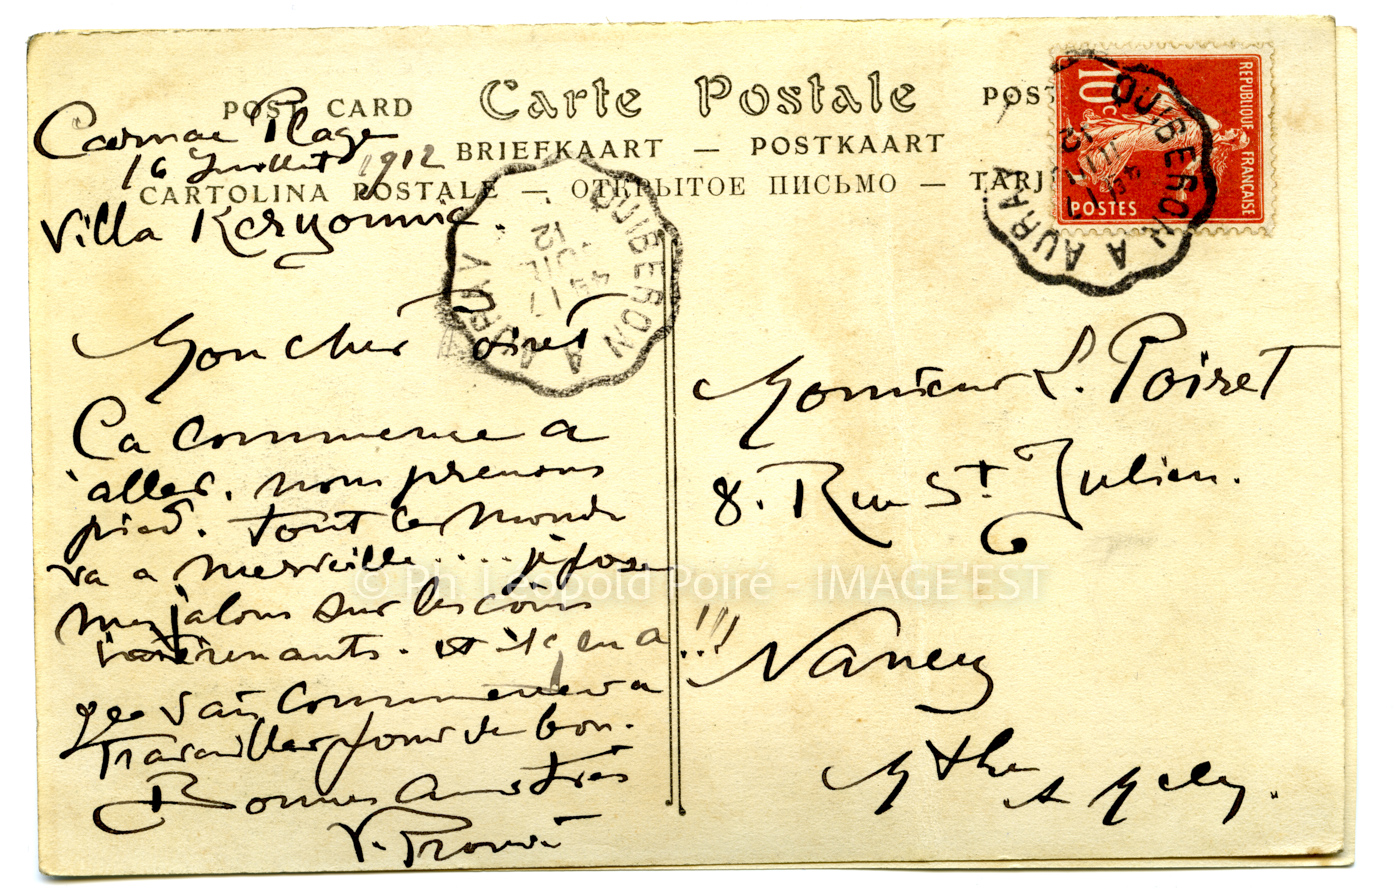 POST CARD
Carte Postale
POST
BRIEFKAART — POSTKAART
CARTOLINA POSTALE — ОТКРЫТОЕ ПИСЬМО — TARJ
Carnac Plage
16 Juillet 1912
Villa Keryonnic.
Mon cher Poiret
Ça commence a
aller. nous prenons
pied. Tout le monde
va a merveille.... je pose
mes jalons sur les coins
intérenants. et il y en a !!!
Je vais commencer a
travailler pour de bon.
Bonnes amitiés
V. Prouvé
Monsieur L. Poiret
8. Rue St Julien.
Nancy
Mthe & Melle.
REPUBLIQUE FRANÇAISE
10c
POSTES
QUIBERON A AURAY
17 JUIL 12
QUIBERON A AURAY
JUIL 12
© Ph. Léopold Poiré - IMAGE'EST